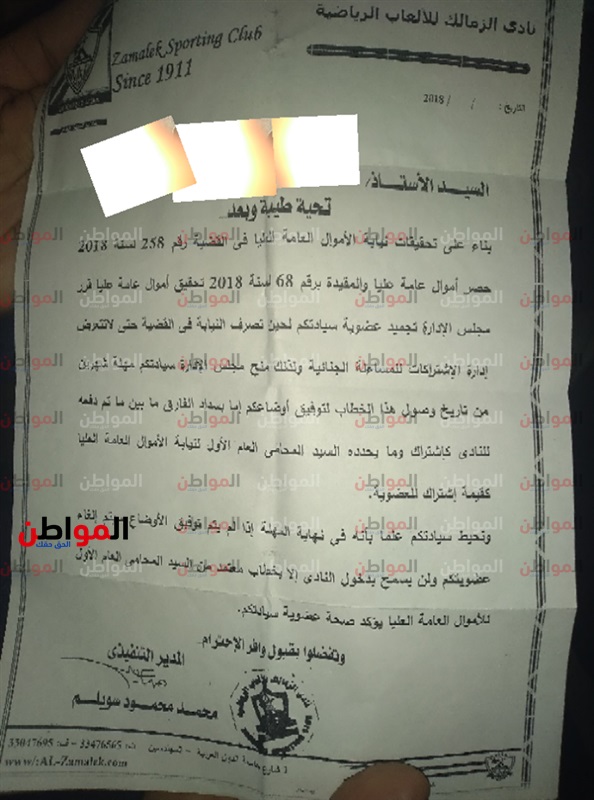 نادى الزمالك للألعاب الرياضية
Zamalek Sporting Club
Since 1911
التاريخ : / / 2018
السيد الأستاذ/
تحية طيبة وبعد
بناء على تحقيقات نيابة الأموال العامة العليا فى القضية رقم 258 لسنة 2018
حصر أموال عامة عليا والمقيدة برقم 68 لسنة 2018 تحقيق أموال عامة عليا قرر
مجلس الإدارة تجميد عضوية سيادتكم لحين تصرف النيابة فى القضية حتى لاتتعرض
إدارة الإشتراكات للمساءلة الجنائية ولذلك منح مجلس الإدارة سيادتكم مهلة شهرين
من تاريخ وصول هذا الخطاب لتوفيق أوضاعكم إما بسداد الفارق ما بين ما تم دفعه
للنادى كإشتراك وما يحدده السيد المحامى العام الأول لنيابة الأموال العامة العليا
كقيمة إشتراك للعضوية.
ونحيط سيادتكم علما بأنه في نهاية المهلة إذا لم يتم توفيق الأوضاع إلغاء
عضويتكم ولن يسمح بدخول النادى إلا بخطاب معتمد من السيد المحامى العام الأول
للأموال العامة العليا يؤكد صحة عضوية سيادتكم.
وتفضلوا بقبول وافر الإحترام
المدير التنفيذى
محمد محمود سويلم
المواطن
الحق حقك
1 شارع جامعة الدول العربية - المهندسين ت: 33476565 - ف: 33047695
www.:AL-Zamalek.com